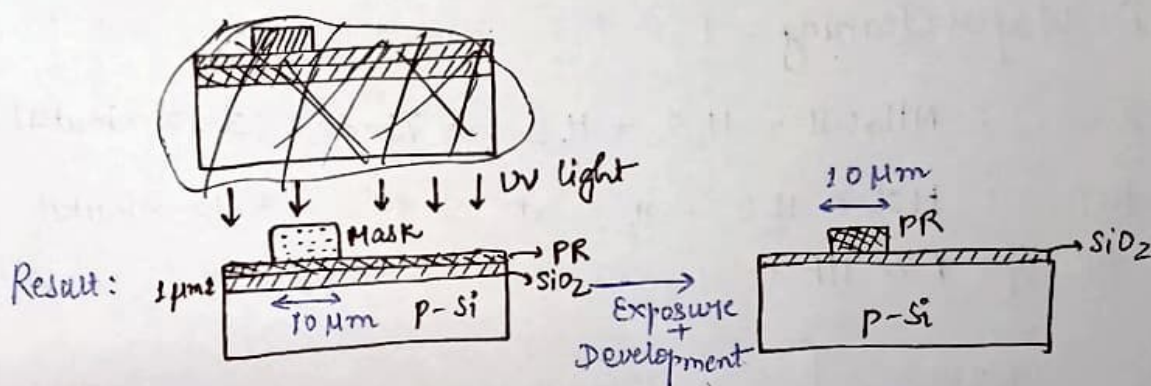 UV light
Mask
PR
Result:
1 μm
SiO₂
10 μm
p-Si
Exposure
+
Development
10 μm
PR
SiO₂
p-Si